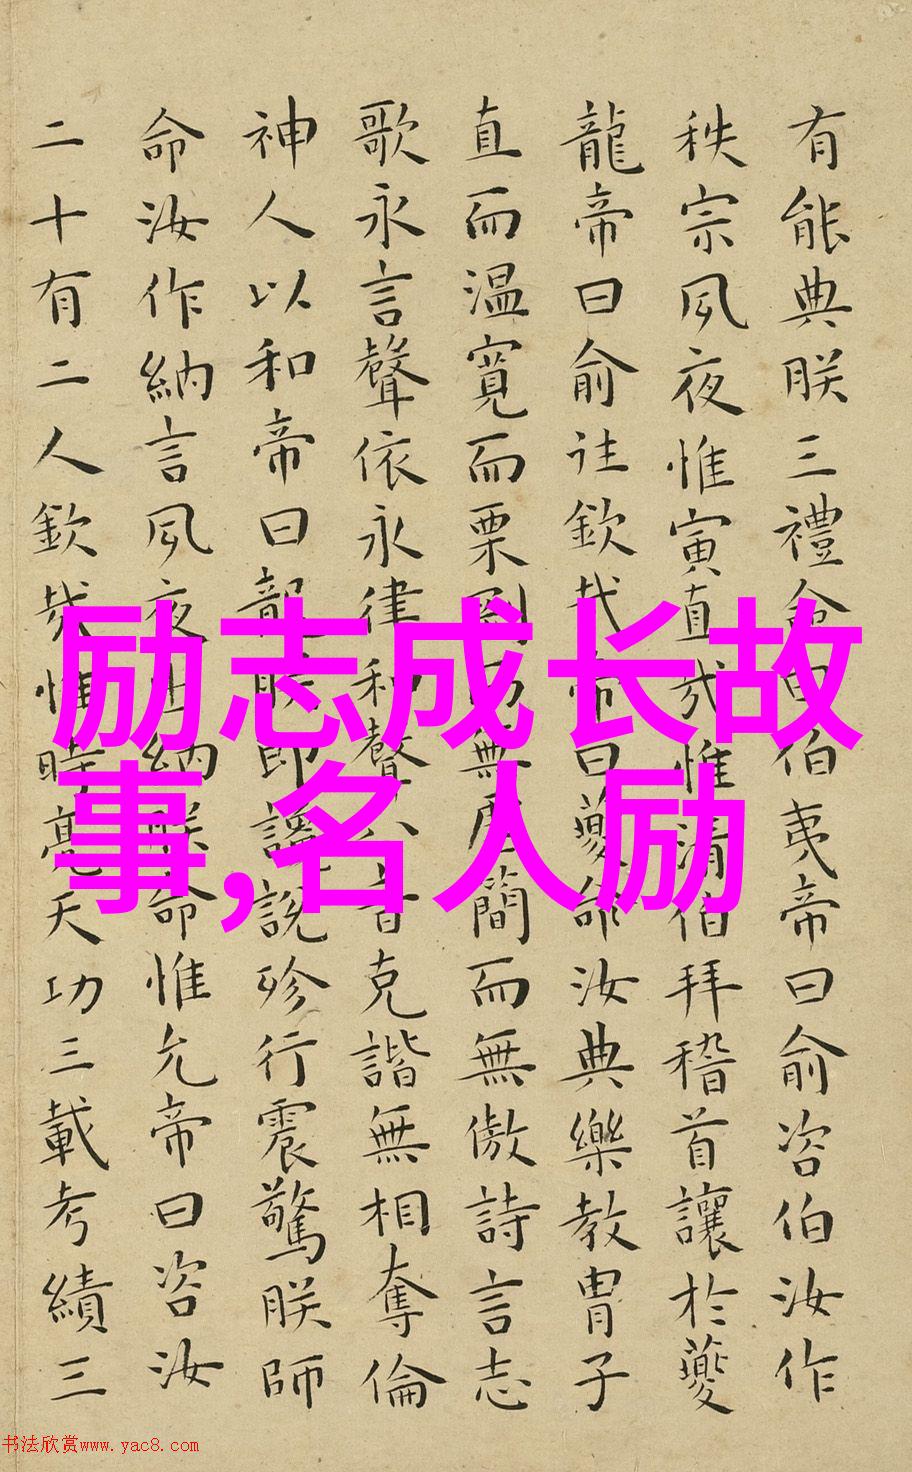 有能典朕三禮僉曰伯夷帝曰俞咨伯汝作
秩宗夙夜惟寅直哉惟清伯拜稽首讓於夔
龍帝曰俞往欽哉帝曰夔命汝典樂教胄子
直而温寬而栗剛而無虐簡而無傲詩言志
歌永言聲依永律和聲八音克諧無相奪倫
神人以和帝曰龍朕堲讒說殄行震驚朕師
命汝作納言夙夜出納朕命惟允帝曰咨汝
二十有二人欽哉惟時亮天功三載考績三
励志成长故
事,名人励
书法欣赏www.yac8.com